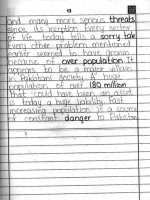 and many more serious threats
since its inception Every sector
of life today tells a sorry tale
Every other problem mentioned
earlier seemed to have grown
because of over population It
appears to be a major villain
in Pakistani society. A huge
population of over 180 million
that could have been an asset
is today a huge liability. Fast
increasing population is a source
of constant danger to Pakistan